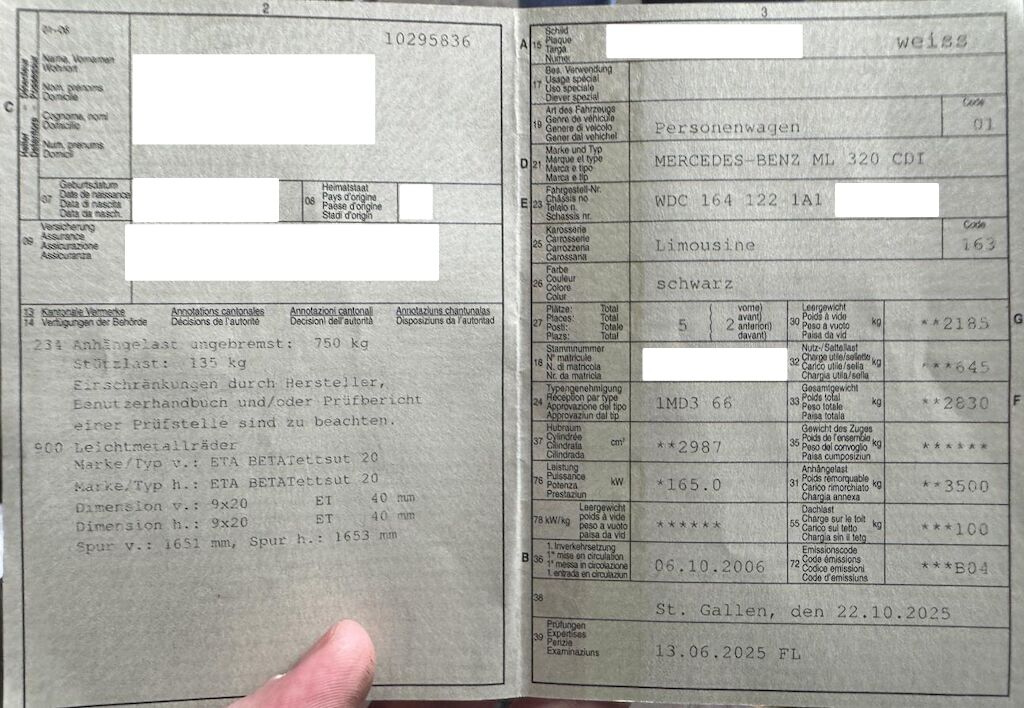 2
01-06
10295836
C
Halter - Détenteur
Detentore - Possessur
Name, Vornamen
Wohnort
Nom, prénoms
Domicile
Cognome, nomi
Domicilio
Num, prenums
Domicil
07
Geburtsdatum
Date de naissance
Data di nascita
Data da nasch.
08
Heimatstaat
Pays d'origine
Paese d'origine
Stadi d'origin
09
Versicherung
Assurance
Assicurazione
Assicuranza
13 Kantonale Vermerke Annotations cantonales Annotazioni cantonali Annotaziuns chantunalas
14 Verfügungen der Behörde Décisions de l'autorité Decisioni dell'autorità Disposiziuns da l'autoritad
234 Anhängelast ungebremst: 750 kg
Stützlast: 135 kg
Einschränkungen durch Hersteller,
Benutzerhandbuch und/oder Prüfbericht
einer Prüfstelle sind zu beachten.
900 Leichtmetallräder
Marke/Typ v.: ETA BETATettsut 20
Marke/Typ h.: ETA BETATettsut 20
Dimension v.: 9x20 ET 40 mm
Dimension h.: 9x20 ET 40 mm
Spur v.: 1651 mm, Spur h.: 1653 mm
3
A 15
Schild
Plaque
Targa
Numer
weiss
17
Bes. Verwendung
Usage spécial
Uso speciale
Diever spezial
19
Art des Fahrzeugs
Genre de véhicule
Genere di veicolo
Gener dal vehichel
Personenwagen
Code
01
D 21
Marke und Typ
Marque et type
Marca e tipo
Marca e tip
MERCEDES-BENZ ML 320 CDI
E 23
Fahrgestell-Nr.
Châssis no
Telaio n.
Schassis nr.
WDC 164 122 1A1
25
Karosserie
Carrosserie
Carrozzeria
Carossaria
Limousine
Code
163
26
Farbe
Couleur
Colore
Colur
schwarz
27
Plätze: Total
Places: Total
Posti: Totale
Plazs: Total
5 ( 2
vorne)
avant)
anteriori)
davant)
30
Leergewicht
Poids à vide
Peso a vuoto
Paisa da vid
kg
**2185
G
18
Stammnummer
N° matricule
N. di matricola
Nr. da matricla
32
Nutz-/Sattellast
Charge utile/sellette
Carico utile/sella
Chargia utila/sella
kg
***645
24
Typengenehmigung
Réception par type
Approvazione del tipo
Approvaziun dal tip
1MD3 66
33
Gesamtgewicht
Poids total
Peso totale
Paisa totala
kg
**2830
F
37
Hubraum
Cylindrée
Cilindrata
Cilindrada
cm³
**2987
35
Gewicht des Zuges
Poids de l'ensemble
Peso del convoglio
Paisa cumposiziun
kg
******
76
Leistung
Puissance
Potenza
Prestaziun
kW
*165.0
31
Anhängelast
Poids remorquable
Carico rimorchiato
Chargia annexa
kg
**3500
78 kW/kg
Leergewicht
poids à vide
peso a vuoto
paisa da vid
******
55
Dachlast
Charge sur le toit
Carico sul tetto
Chargia sin il tetg
kg
***100
B 36
1. Inverkehrsetzung
1re mise en circulation
1a messa in circolazione
1. entrada en circulaziun
06.10.2006
72
Emissionscode
Code émissions
Codice emissioni
Code d'emissiuns
***B04
38
St. Gallen, den 22.10.2025
39
Prüfungen
Expertises
Perizie
Examinaziuns
13.06.2025 FL